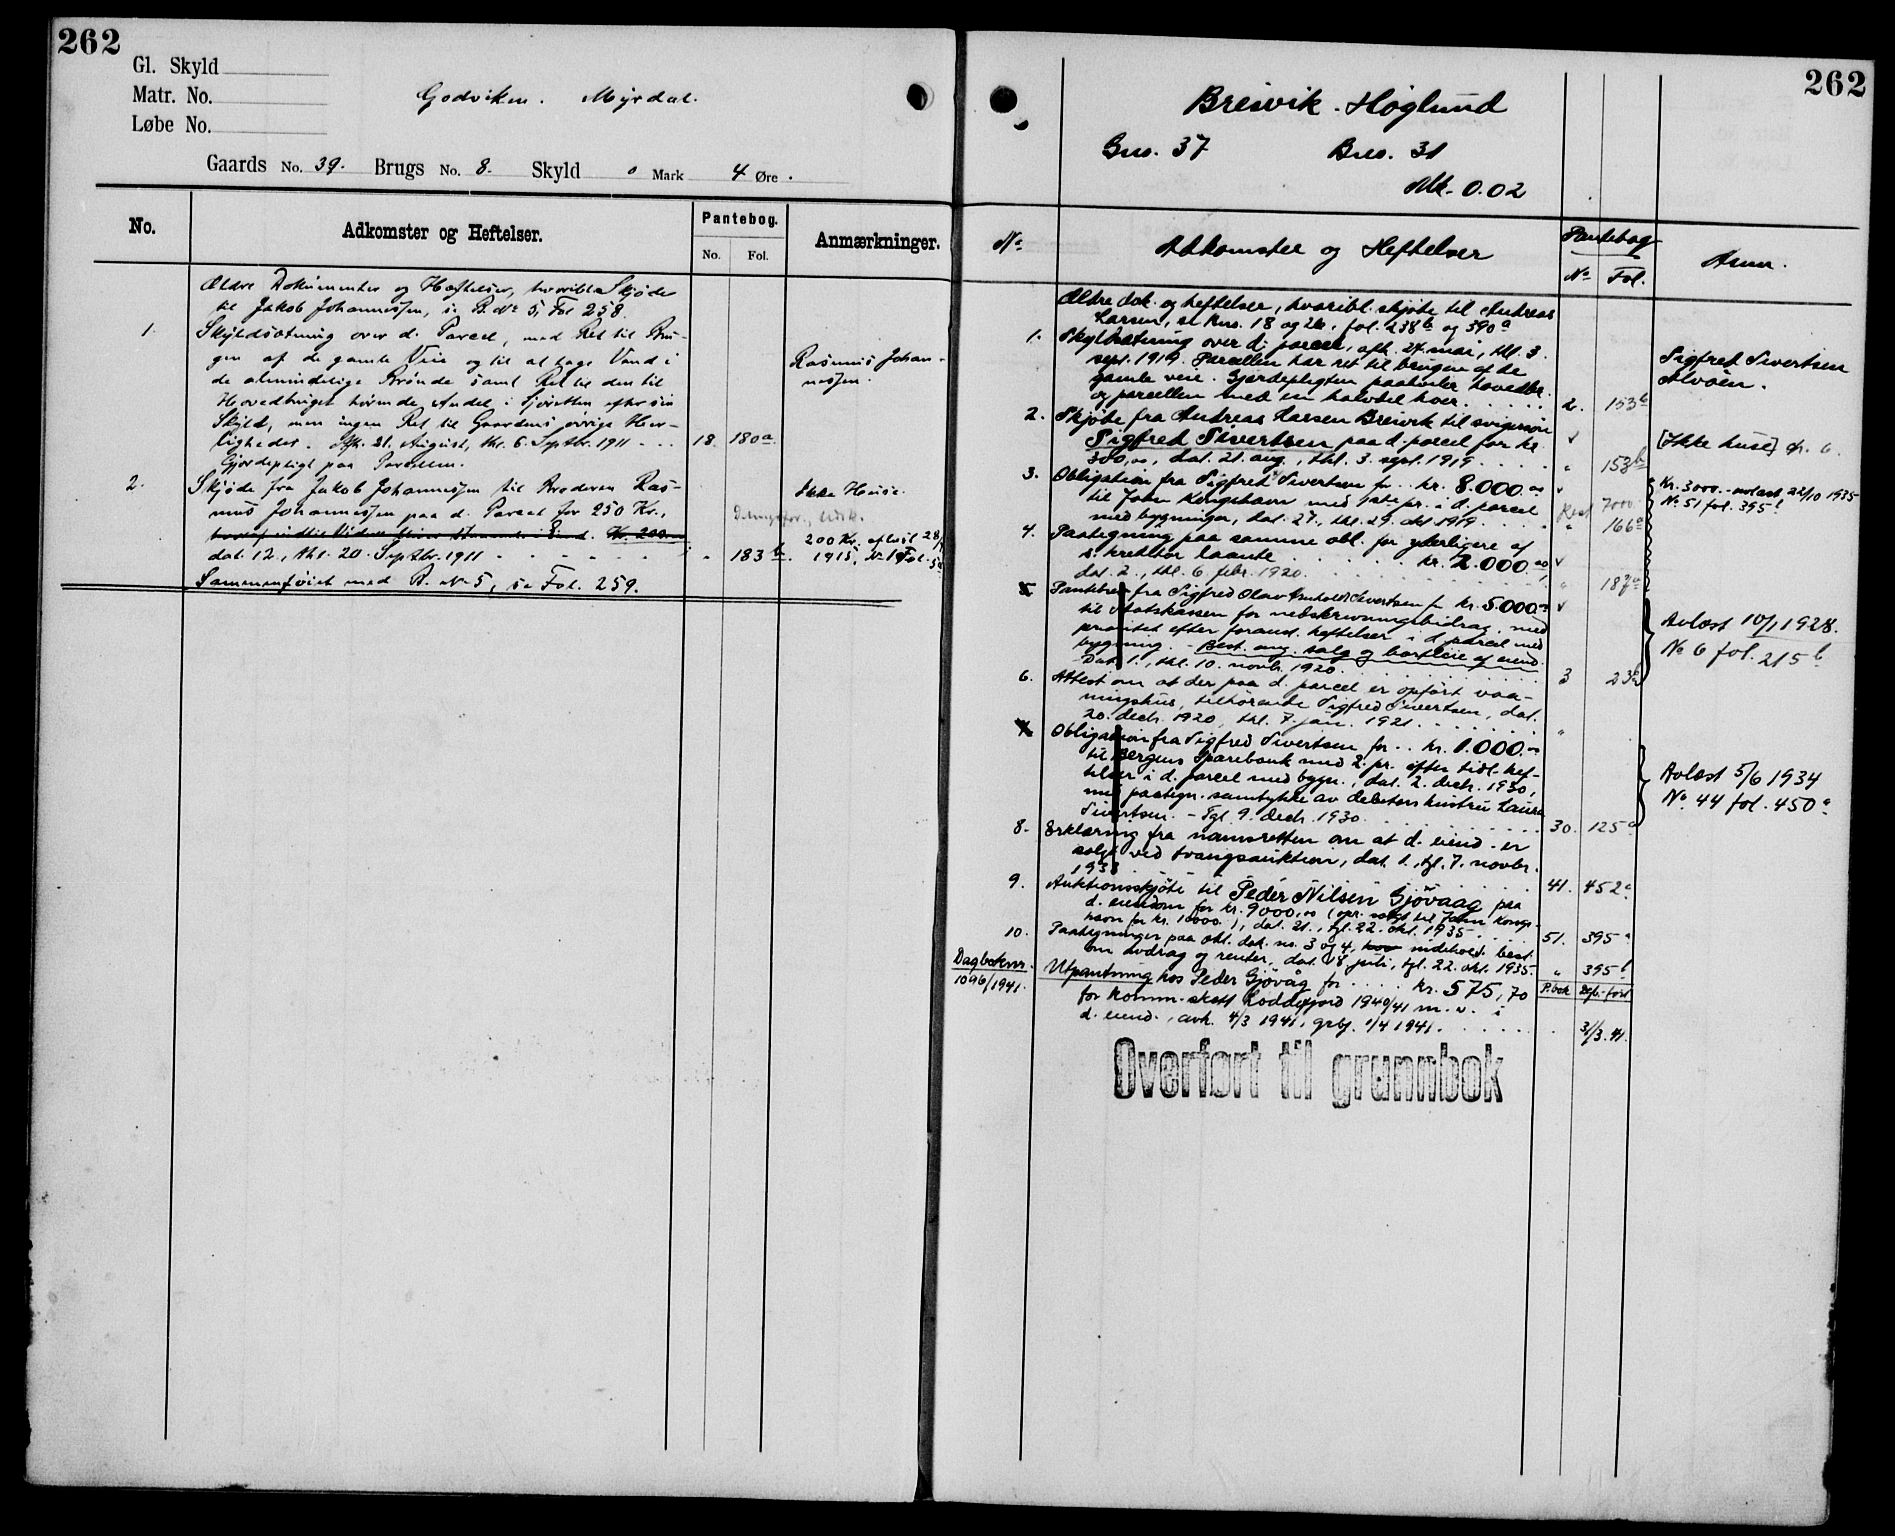 262
Gl. Skyld
Matr. No.
Løbe No.
Godviken. Myrdal.
Gaards No. 39. Brugs No. 8. Skyld 0 Mark 4 Øre.
No.
Adkomster og Heftelser.
Pantebog.
No. Fol.
Anmærkninger.
Ældre Dokumenter og Heftelser, hvoriblt Skjøde
til Jakob Johannessen, se R. No 5, Fol 258.
1. Skyldsætning over d. Parcel, med Ret til Bru-
gen af de gamle Veie og til at tage Vand i
de almindelige Brønde samt Ret til den til
Hovedbruget hørende Andel i Sjøretten efter sin
Skyld, men ingen Ret til Gaardens øvrige Her-
ligheder. Afh. 21. August, thl. 6. Septbr. 1911 - - - 18. 180a
Gjerdepligt paa Parcellen.
Rasmus Johan-
nessen.
2. Skjøde fra Jakob Johannessen til Broderen Ras-
mus Johannessen paa d. Parcel for 250 Kr.,
Kr. 200
dat. 12., thl. 20. Septbr. 1911 - - - - - " 183b.
Ikke Huse.
200 Kr. aflæst 28/
1915, No 19 Fol.
Sammenføiet med B. No 5, se Fol. 259.
262
Breivik - Høglund
Gno. 37 Bno. 31
Mk. 0.02
No
Adkomster og Heftelser
Pantebog
No Fol.
Anm.
Ældre dok. og heftelser, hvoribl. skjøte til Andreas
Larsen, se Rno. 18 og 26, fol. 238b og 390a
1. Skyldsætning over d. parcel, afh. 24. mai, thl. 3.
sept. 1919. Parcellen har ret til brugen af de
gamle veie. Gjærdepligten paahviler hovedbr.
og parcellen med en halvdel hver. . . . . . 2. 153b
Sigfred Sivertsen
Alvøen.
2. Skjøte fra Andreas Larsen Breivik til svigersøn
Sigfred Sivertsen paa d. parcel for kr.
300,00, dat. 21. aug., thl. 3. sept. 1919 . . . . " 153b
[Ikke huse] cfr. 6.
3. Obligation fra Sigfred Sivertsen for .. kr. 8.000.00
til John Kongshavn med 1ste pr. i d. parcel
med bygninger, dat. 27., thl. 29. okt 1919. . . . " 166a
Rest 7000.
Kr. 3000.- avlæst 22/10 1935
No 51 fol. 395b
4. Paategning paa samme obl. for yderligere af
s. kreditor laante . . . . . . kr. 2.000.00
dat. 2., thl. 6. febr. 1920. . . . . . . . . " 187a
5. Pantebrev fra Sigfred Olav Arnholdt Sivertsen for kr. 5.000.00
til Statskassen for nedskrivningsbidrag, med
prioritet efter foranst. heftelser i d. parcel med
bygning. - Best. ang. salg og bortleie af eiend.
Dat. 1., thl. 10. novbr. 1920. . . . . . . . 3 23b
Avlæst 10/1 1928.
No 6 fol. 215b
6. Attest om at der paa d. parcel er opført vaa-
ningshus, tilhørende Sigfred Sivertsen, dat.
20. decb. 1920, thl. 7. jan. 1921. . . . . . "
7. Obligation fra Sigfred Sivertsen for .. kr. 1.000.00
til Bergens Sparebank med 2. pr. efter tidl. hef-
telser i d. parcel med bygn., dat. 2. decb. 1930,
med paategn. samtykke av debitors hustru Laura
Sivertsen. - Tgl. 9. decb. 1930. . . . . . . 30. 125a
Avlæst 5/6 1934
No. 44 fol. 450a
8. Erklæring fra namsretten om at d. eiend. er
solgt ved tvangsauktion, dat. 1., tgl. 7. novbr.
1933 . . . . . . . . . 41. 452a
9. Auktionsskjøte til Peder Nilsen Gjøvaag paa
d. eiendom for kr. 9000,00 (opr. solgt til John Kongs-
havn for kr. 10000.-), dat. 21., tgl. 22. okt. 1935 . . . 51. 395a
10. Paategninger paa obl. dok. no. 3 og 4, indehold. best.
om avdrag og renter, dat. 18. juli, tgl. 22. okt. 1935. " 395b
Dagboknr.
1096/1941.
Utpantning hos Peder Gjøvåg for . . . . kr. 575,70
P.bok Dep. ført
for komm. skatt Laddefjord 1940/41 m. v. i
d. eiend., avh. 4/3 1941, grbj. 1/4 1941. . . . . . . 31/3. 41.
Overført til grunnbok